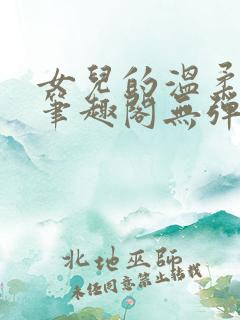 女兒的溫柔
筆趣閣無彈
北地巫師
未任同意禁止轉載